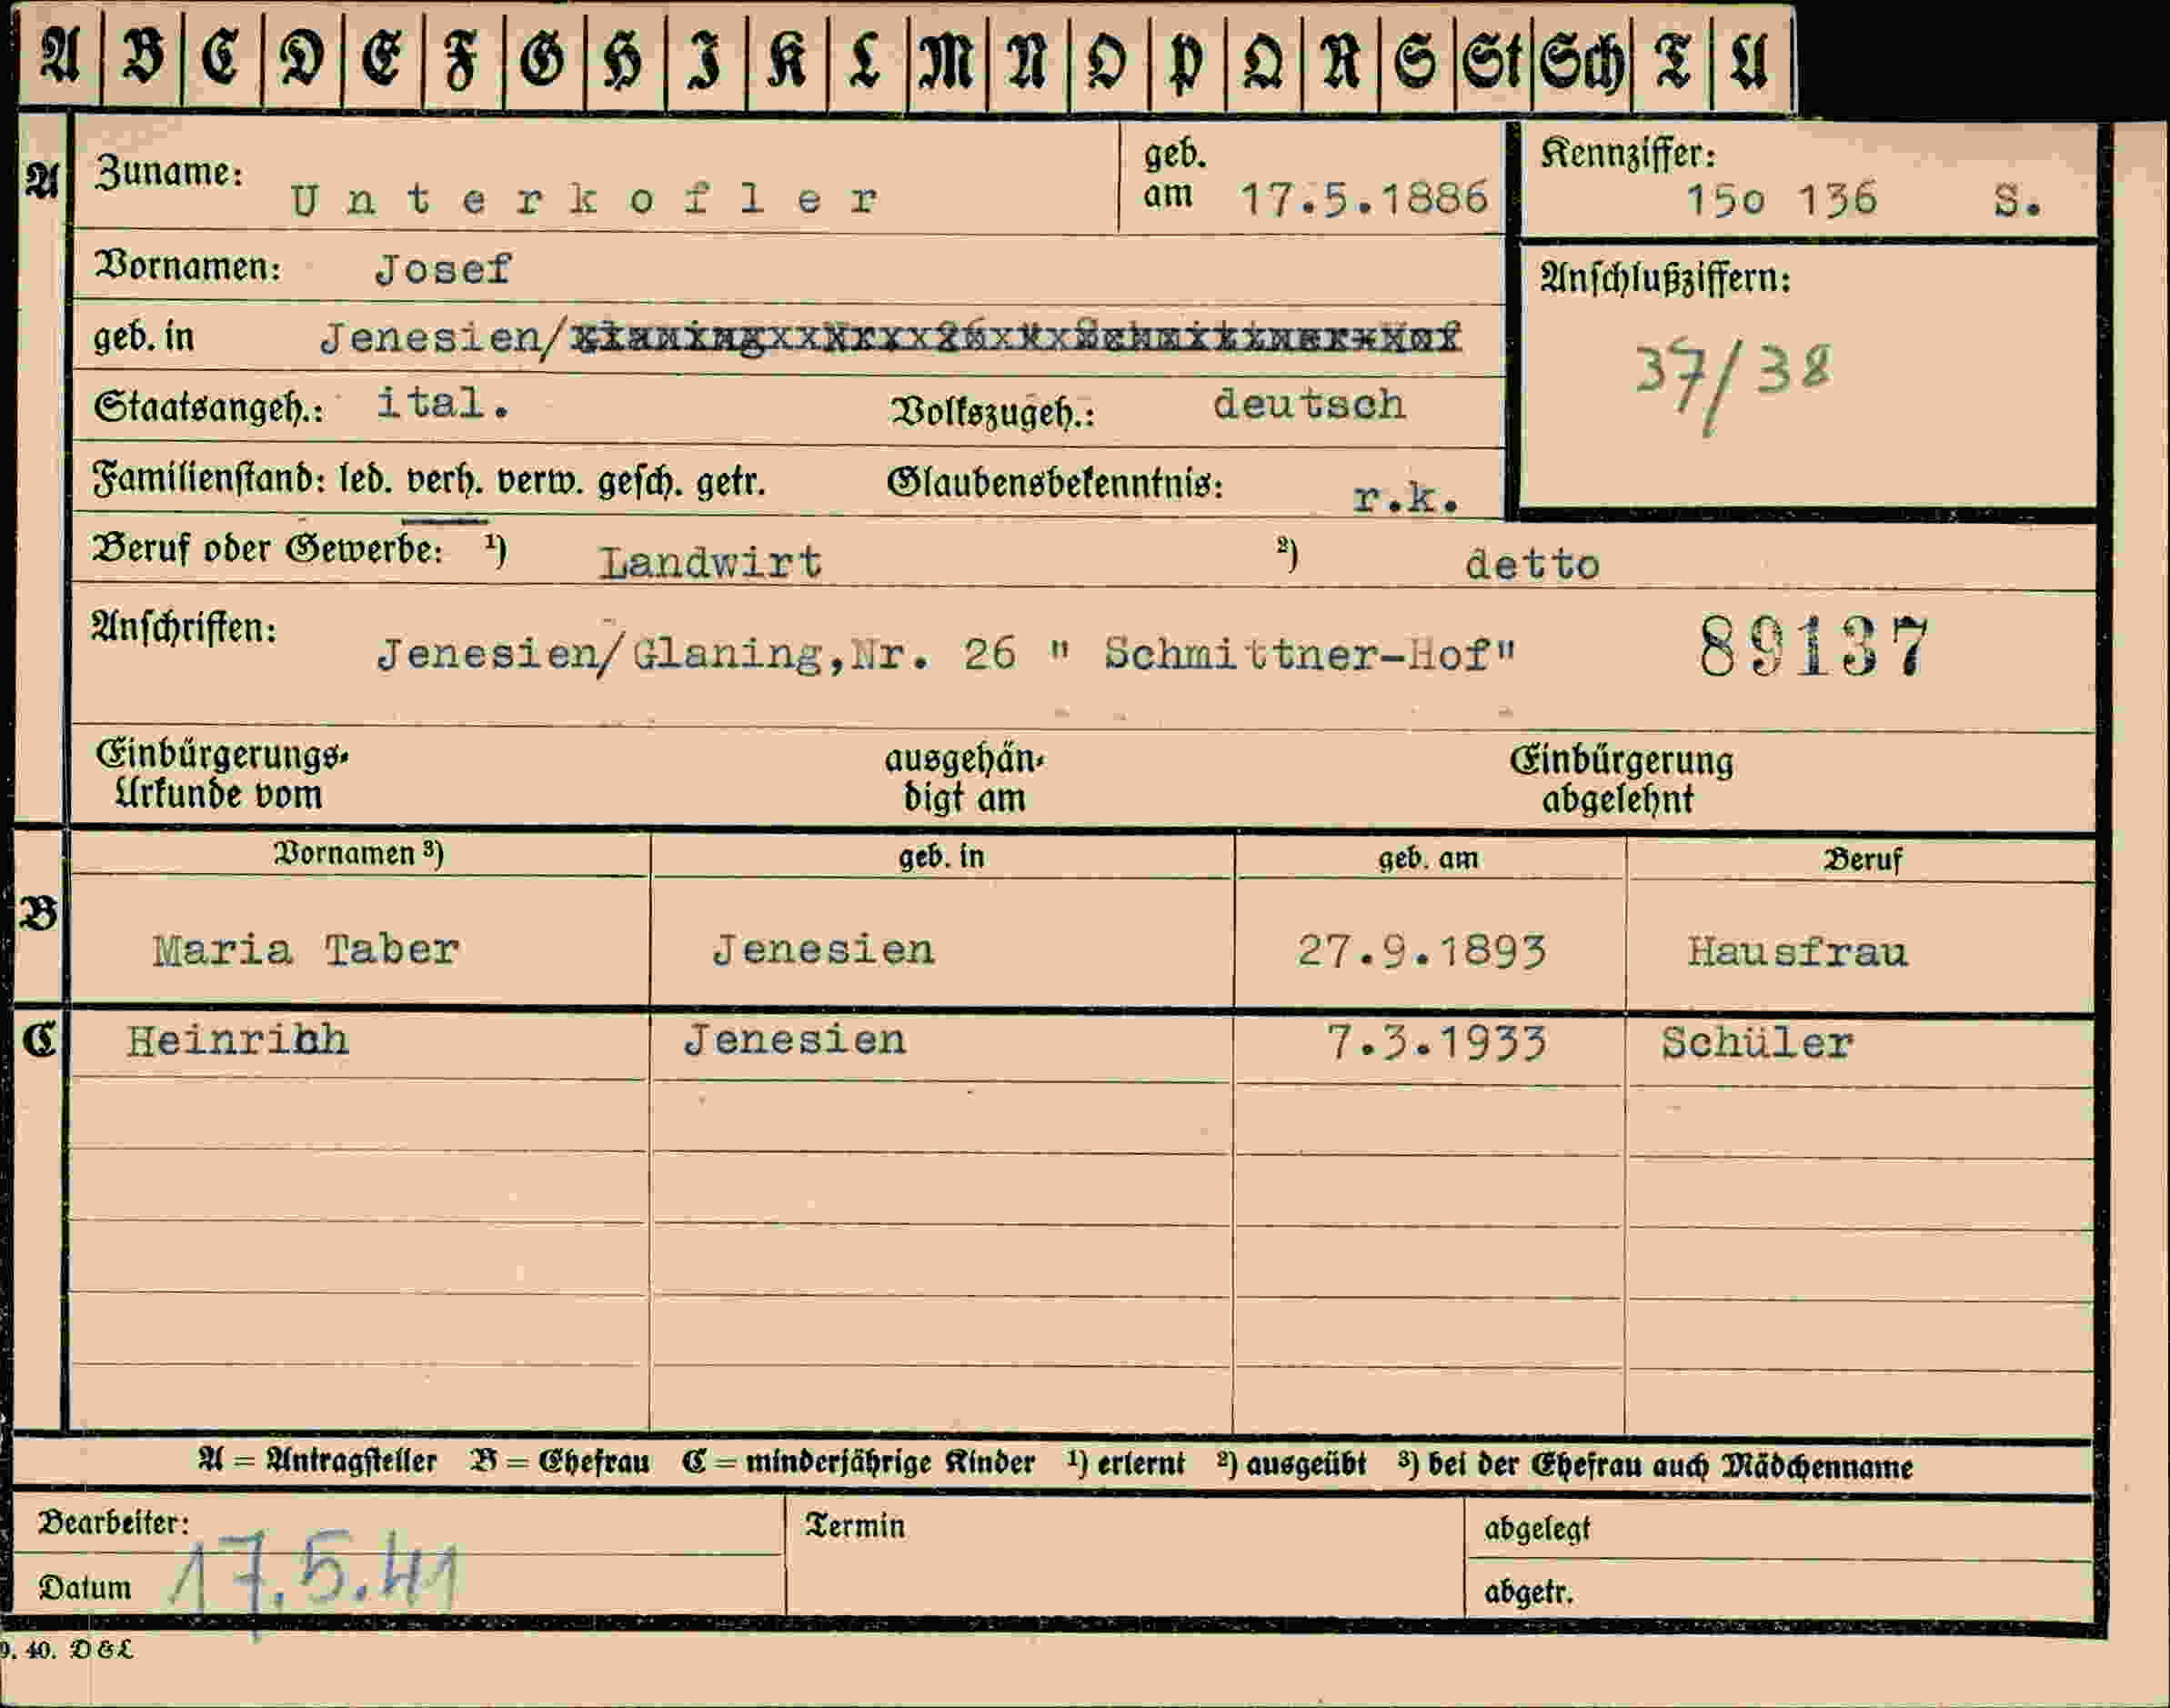 A B C D E F G H I K L M N O P Q R S St Sch T U
A Zuname: Unterkofler geb. am 17.5.1886 Kennziffer: 15o 136 S.
Vornamen: Josef Anschlußziffern:
geb. in Jenesien/Glaning, Nr. 26 " Schmittner-Hof 37/38
Staatsangeh.: ital. Volkszugeh.: deutsch
Familienstand: led. verh. verw. gesch. getr. Glaubensbekenntnis: r.k.
Beruf oder Gewerbe: ¹) Landwirt ²) detto
Anschriften: Jenesien/Glaning,Nr. 26 " Schmittner-Hof" 89137
Einbürgerungs- ausgehän- Einbürgerung
Urkunde vom digt am abgelehnt
Vornamen ³) geb. in geb. am Beruf
B Maria Taber Jenesien 27.9.1893 Hausfrau
C Heinrihh Jenesien 7.3.1933 Schüler
A = Antragsteller B = Ehefrau C = minderjährige Kinder ¹) erlernt ²) ausgeübt ³) bei der Ehefrau auch Mädchenname
Bearbeiter: Termin abgelegt
Datum 17.5.41 abgetr.
9. 40. D & L